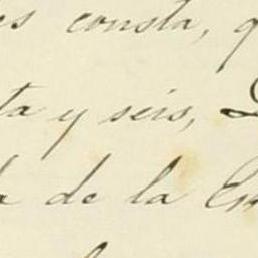 es consta, q
ta y seis, D
a de la Es